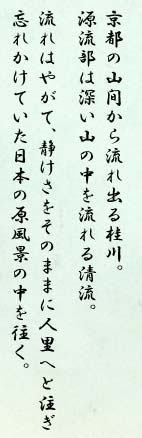 京都の山間から流れ出る桂川。
源流部は深い山の中を流れる清流。
流れはやがて、静けさをそのままに人里へと注ぎ
忘れかけていた日本の原風景の中を往く。